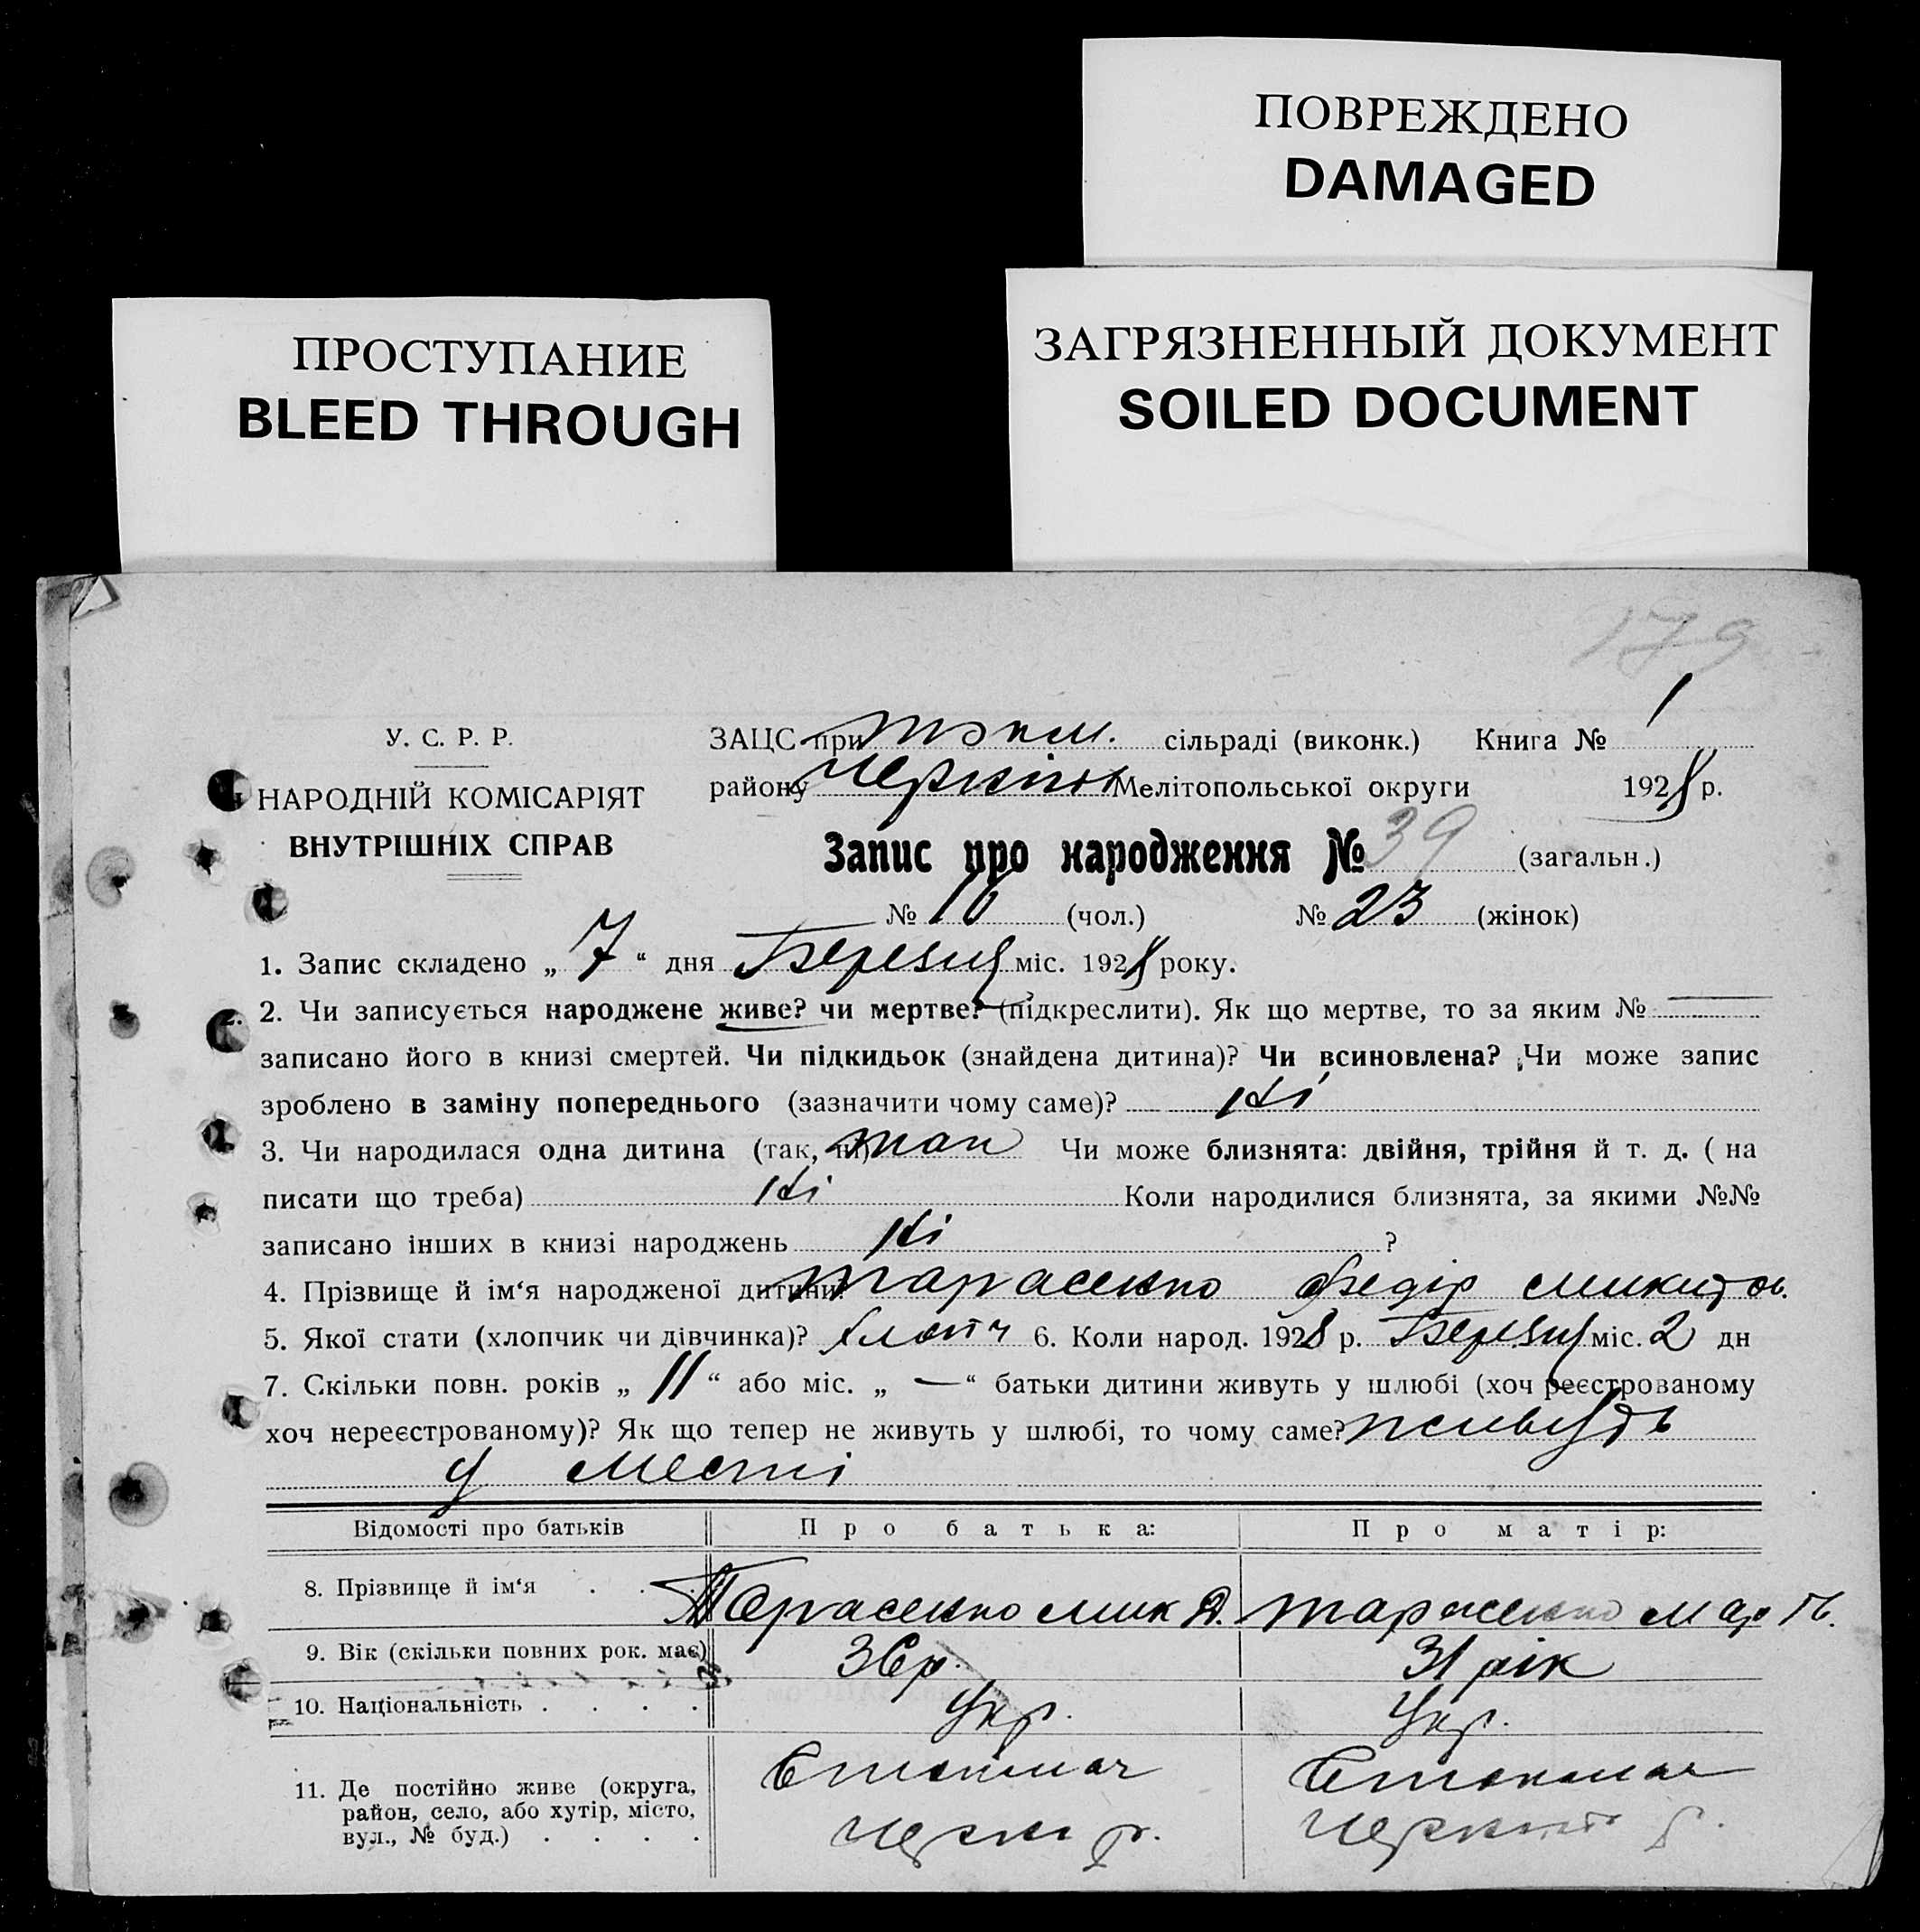 ПОВРЕЖДЕНО
DAMAGED
ПРОСТУПАНИЕ
BLEED THROUGH
ЗАГРЯЗНЕННЫЙ ДОКУМЕНТ
SOILED DOCUMENT
179
У. С. Р. Р.
НАРОДНІЙ КОМІСАРІЯТ
ВНУТРІШНІХ СПРАВ
ЗАЦС при Токм. сільраді (виконк.) Книга № 1
району Мелітопольської округи 1928 р.
Запис про народження № 39 (загальн.)
№ 16 (чол.) № 23 (жінок)
1. Запис складено „ 7 “ дня Березня міс. 1928 року.
2. Чи записується народжене живе? чи мертве? (підкреслити). Як що мертве, то за яким № —
записано його в книзі смертей. Чи підкидьок (знайдена дитина)? Чи всиновлена? Чи може запис
зроблено в заміну попереднього (зазначити чому саме)? Ні
3. Чи народилася одна дитина (так, ні) так Чи може близнята: двійня, трійня й т. д. ( на
писати що треба) Ні Коли народилися близнята, за якими №№
записано інших в книзі народжень Ні ?
4. Прізвище й ім‘я народженої дитини: Тарасенко Федір Микитов.
5. Якої стати (хлопчик чи дівчинка)? хлопч 6. Коли народ. 1928 р. Березня міс. 2 дн
7. Скільки повн. років „ 11 “ або міс. „ — “ батьки дитини живуть у шлюбі (хоч реєстрованому
хоч нереєстрованому)? Як що тепер не живуть у шлюбі, то чому саме? живуть
у месті
Відомості про батьків Про батька: Про матір:
8. Прізвище й ім‘я . . . Тарасенко Мик Д. Тарасенко Мар
9. Вік (скільки повних рок. має) 36 р. 31 рік
10. Національність . . . . Укр. Укр.
11. Де постійно живе (округа,
район, село, або хутір, місто,
вул., № буд.) . . . .